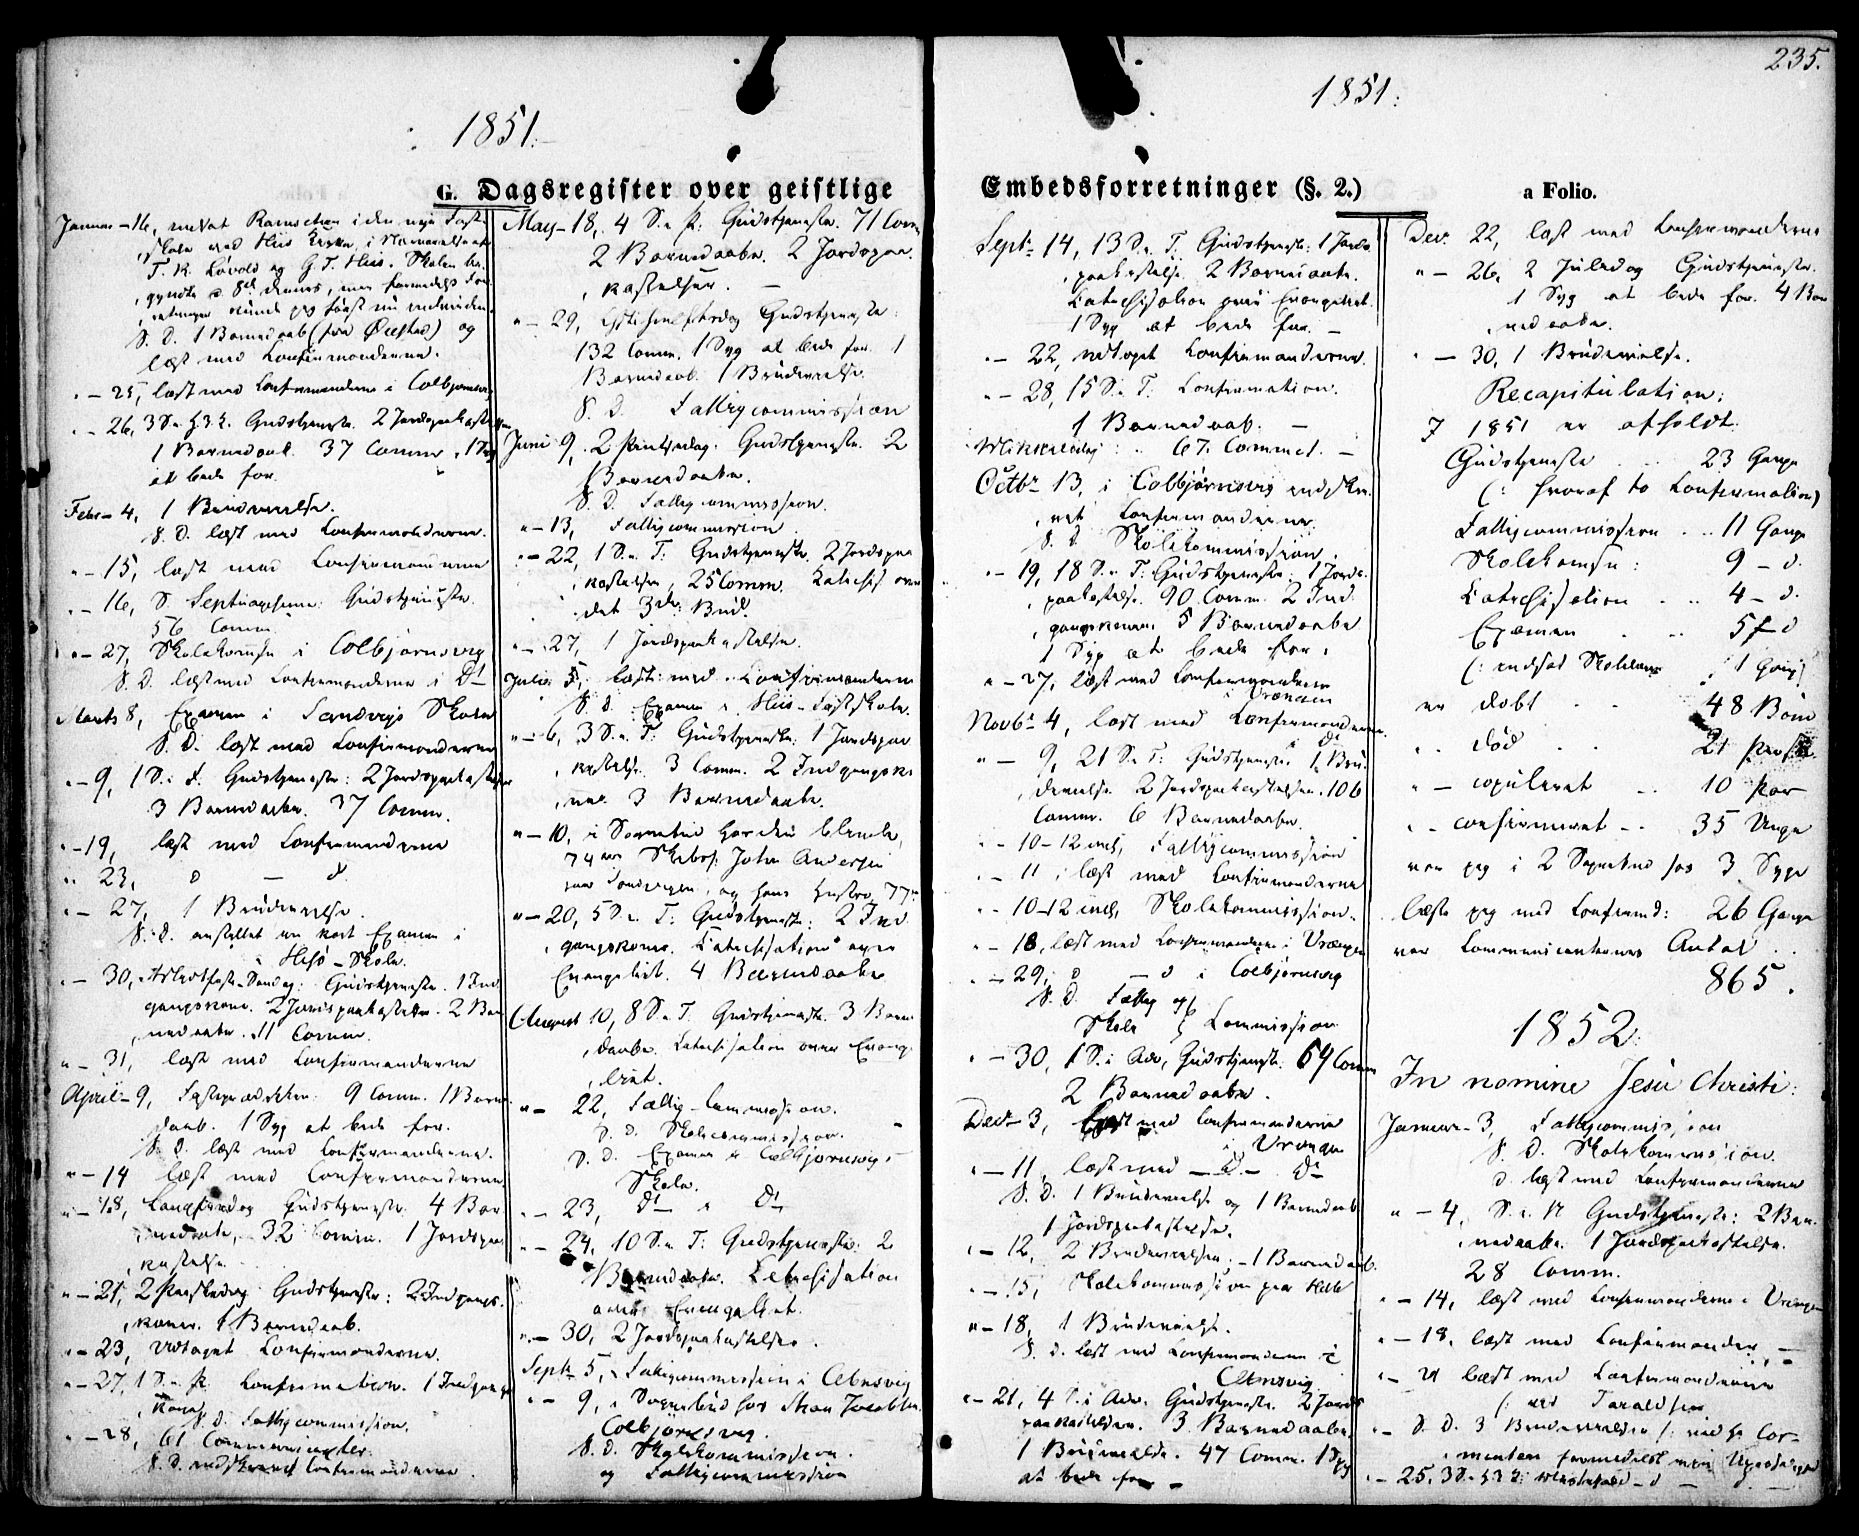 235.
1851.
1851.
G. Dagsregister over geistlige
Embedsforretninger (§. 2.)
a Folio.
Januar – 16, i den nye Fast
Skole ved Hiis Kirke, i Nærværelse af
T. K. Løvold og G. T. Hiis. Skolen be-
S. D. 1 Barnedaab (fra Øiestad) og
læst med Confirmanderne.
" – 25, læst med Confirmanderne i Colbjørnsvig
" – 26, 3 S. e. H. 3 K. Gudstjeneste. 2 Jordspaakastelser
1 Barnedaab. 37 Comm. 1 Syg
at bede for.
Febr – 4, 1 Brudevielse.
S. D. læst med Confirmanderne.
" – 15, læst med Confirmanderne
" – 16, S. Septuagesima: Gudstjeneste.
56 Comm.
" – 27, Skolekomsn i Colbjørnsvig
S. D. læst med Confirmanderne i Dt
Marts 8, Examen i Sandvigs Skole
S. D. læst med Confirmanderne
" – 9, 1 S. i F. Gudstjeneste: 2 Jordspaakastelser
3 Barnedaabe. 37 Comm.
" – 19, læst med Confirmanderne
" 23, d – d
" – 27, 1 Brudevielse.
S. D. anstillet en kort Examen i
Hisø – Skole.
" – 30, Midfaste-Søndag: Gudstjeneste. 1 Ind-
gangskone. 2 Jordspaakastelser. 2 Bar-
nedaabe. 11 Comm.
" – 31, læst med Confirmanderne
April – 9, 9 Comm. 1 Barne-
daab. 1 Syg at bede for.
S. D. læst med Confirmanderne.
" – 14 læst med Confirmanderne
" – 18, Langfredag Gudstjeneste 4 Bar-
nedaabe, 32 Comm. 1 Jordspaa-
kastelse.
" – 21, 2 Paaskedag Gudstjeneste: 2 Indgangs-
koner. 1 Barnedaab.
" – 23, udtaget Confirmanderne.
" – 27, 1 S. e. P. Confirmation. 1 Indgangs-
kone
S. D. Fattigcommission.
" – 28, 61 Communicanter.
S. D. indskrevet Confirmanderne.
May – 18, 4 S. e. P. Gudstjeneste. 71 Comm
2 Barnedaabe. 2 Jordspaa-
kastelser. –
" – 29, Christi Himmelfartsdag Gudstjeneste:
132 Comm. 1 Syg at bede for. 1
Barnedaab. 1 Brudevielse.
S. D. Fattigcommission
Juni 9, 2 Pintsedag. Gudstjeneste. 2
Barnedaabe.
S. D. Fattigcommission.
" – 13, Fattigcommission.
" – 22, 1 S. e. T: Gudstjeneste. 2 Jordspaa-
kastelser, 25 Comm. Katechis. over
det 3die Bud.
" – 27, 1 Jordspaakastelse.
Juli 5, læst med Confirmanderne
S. D. Examen i Hiis – Fastskole.
" – 6, 3 S. e. T: Gudstjeneste: 1 Jordspaa-
kastelse. 3 Comm. 2 Indgangsko-
ner. 3 Barnedaabe.
" – 10, i Sognebud hos den blinde,
74 aar Skibsf. John Andersen
og hans Hustru, 77
" – 20, 5 S. e. T: Gudstjeneste: 2 Ind-
gangskoner. Catechisation over
Evangeliet. 4 Barnedaabe
August 10, 8 S. e. T. Gudstjeneste. 3 Barne-
daabe. Catechisation over Evange-
liet.
" – 22, Fattig-Commission.
S. D. Skolecommission.
S. D. Examen i Colbjørnsvig –
Skole.
" – 23, Dt " Dt
" – 24, 10 S. e. T: Gudstjeneste: 2
Barnedaabe. Catechisation
over Evangeliet.
" – 30, 2 Jordspaakastelser.
Septr 5, Fattigcommission i
" – 9, i Sognebud hos Jacobsen
Colbjørnsvig.
S. D. Skolekommission.
og Fattigcommission
Septr 14, 13 S. e. T. Gudstjeneste: 1 Jords-
paakastelse. 2 Barnedaabe.
Catechisation over Evangeliet.
1 Syg at bede for. –
" – 22, udtaget Confirmanderne.
" – 28, 15 S. e. T: Confirmation.
1 Barnedaab. –
Mikkelsdag: " 67. Commct. –
Octbr 13, i Colbjørnsvig indskre-
vet Confirmanderne
S. D. Skolekommission.
" – 19, 18 S. e. T: Gudstjeneste: 1 Jords-
paakastelse. 90 Comm. 2 Ind-
gangskoner. 5 Barnedaabe
1 Syg at bede for.
" – 27, læst med Confirmanderne
i Vrængen
Novbr 4, læst med Confirmanderne.
Dt
" – 9, 21 S. e. T: Gudstjeneste 1 Bru-
devielse 2 Jordspaakastelser. 106
Comm. 6 Barnedaabe.
" – 10-12 incl, Fattigcommission
" – 11, læst med Confirmanderne
" – 10-12 incl, Skolekommission.
" – 18, læst med Confirmanderne i Vrængen
" – 29, d – d i Colbjørnsvig
S. D. Fattig og
Skole Commission
" – 30, 1 S. i Adv. Gudstjeneste. 69 Comm
2 Barnedaabe.
Decr – 3, læst med Confirmanderne
i Vrængen
" – 11, læst med – d – Dt
S. D. 1 Brudevielse og 1 Barnedaab
1 Jordspaakastelse.
" – 12, 2 Brudevielser. – 1 Barnedaab.
" – 15, Skolekommission paa
" – 18, 1 Brudevielse.
S. D. læst med Confirmanderne i
" – 21, 4 S. i Adv. Gudstjeneste 2 Jords-
paakastelser. 3 Barnedaabe.
1 Brudevielse. 47 Comm. 1 Syg
at bede for –
Decr 22, læst med Confirmanderne
" – 26, 2 Juledag Gudstjeneste.
1 Syg at bede for. 4 Bar-
nedaabe.
" – 30, 1 Brudevielse.
Recapitulation:
I 1851 er afholdt:
Gudstjeneste .. 23 Gange
(: hvoraf to Confirmation)
Fattigcommission .. 11 Gange
Skolekomsn: 9 – d.
Catechisation .. 4 – d.
Examen .. 5 – d
1 Gang)
er døbt .. 48 Børn
" død .. 21 Pers.
" – copuleret .. 10 Par
" – confirmeret – 35 Unge
var jeg i 2 Sognebud hos 3 Syge
læste jeg med Confirmd: 26 Gange
var Communicanternes Antal .
865.
1852.
In nomine Jesu Christi:
Januar – 3, Fattigcommission
S. D. Skolekommission.
d læst med Confirmanderne
" – 4, S. e. N Gudstjeneste: 2 Bar-
nedaabe. 1 Jordspaakastelse.
28 Comm.
" – 14, læst med Confirmanderne i Vrængen
" – 19, læst med Confirmander –
" – 21 læst med Confirmanderne
(: ved Taraldsen
" – S. D. 3 Brudevielser
" – 25, 3 S. e. H. 3 K: